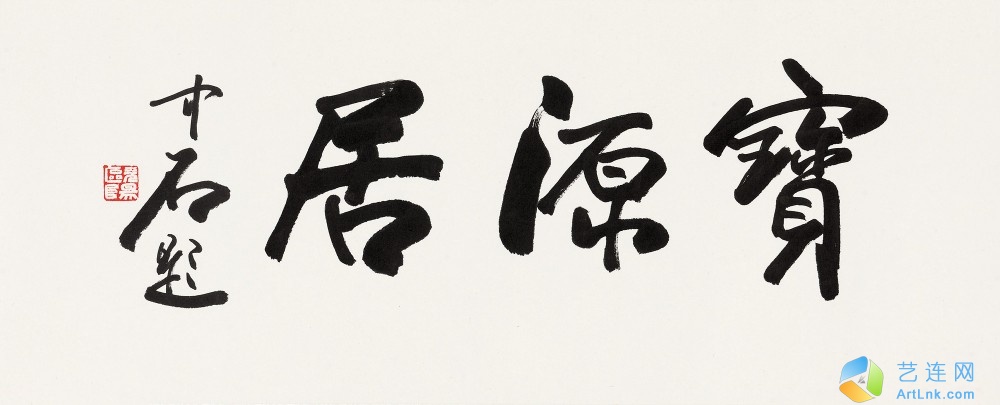 寶源居
中石題
艺连网
ArtLnk.com